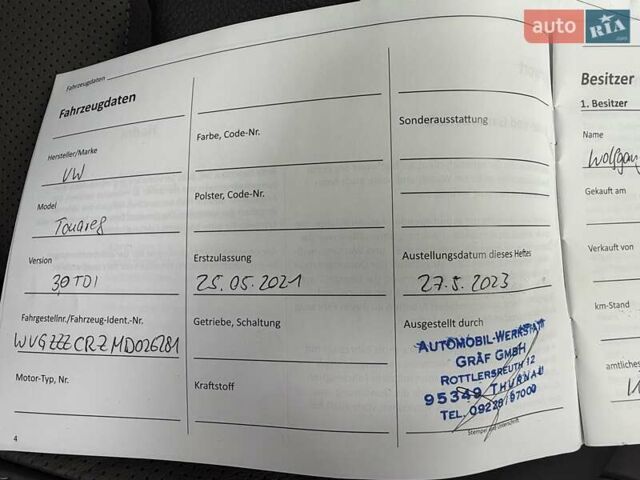 auto RIA .com
Fahrzeugdaten
Fahrzeugdaten
Hersteller/Marke
VW
Model
Touareg
Version
3,0 TDI
Fahrgestellnr./Fahrzeug-Ident.-Nr.
WVGZZZCRZMD026281
Motor-Typ, Nr.
4
Farbe, Code-Nr.
Polster, Code-Nr.
Erstzulassung
25.05.2021
Getriebe, Schaltung
Kraftstoff
Sonderausstattung
Austellungsdatum dieses Heftes
27.5.2023
Ausgestellt durch
AUTOMOBIL-WERKSTATT
GRÄF GMBH
ROTTLERSREUTH 12
95349 THURNAU
TEL. 09228/97000
Stempel und Unterschrift
Besitzer
1. Besitzer
Name
Wolfgang
Gekauft am
Verkauft von
km-Stand
amtliches